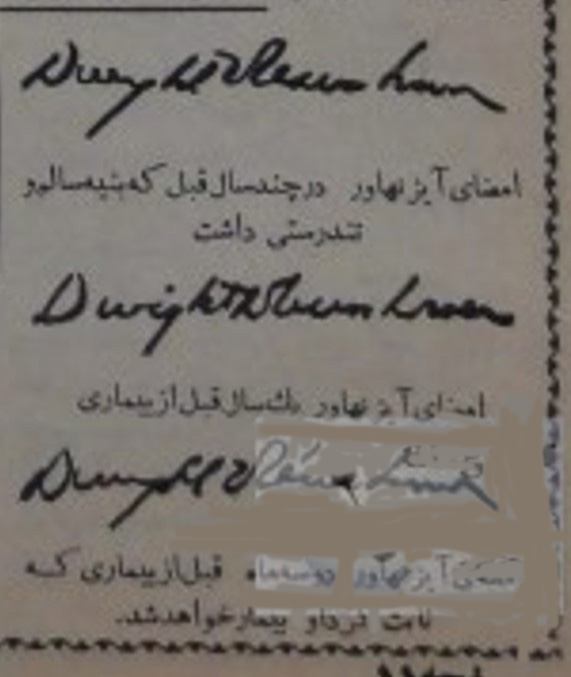 Dwight D Eisenhower
امضای آیزنهاور در چند سال قبل که بنیه سالم و
تندرستی داشت
Dwight D Eisenhower
امضای آیزنهاور یک سال قبل از بیماری
Dwight D Eisenhower
آیزنهاور دو سه ماه قبل از بیماری که
ثابت کرد او بیمار خواهد شد.